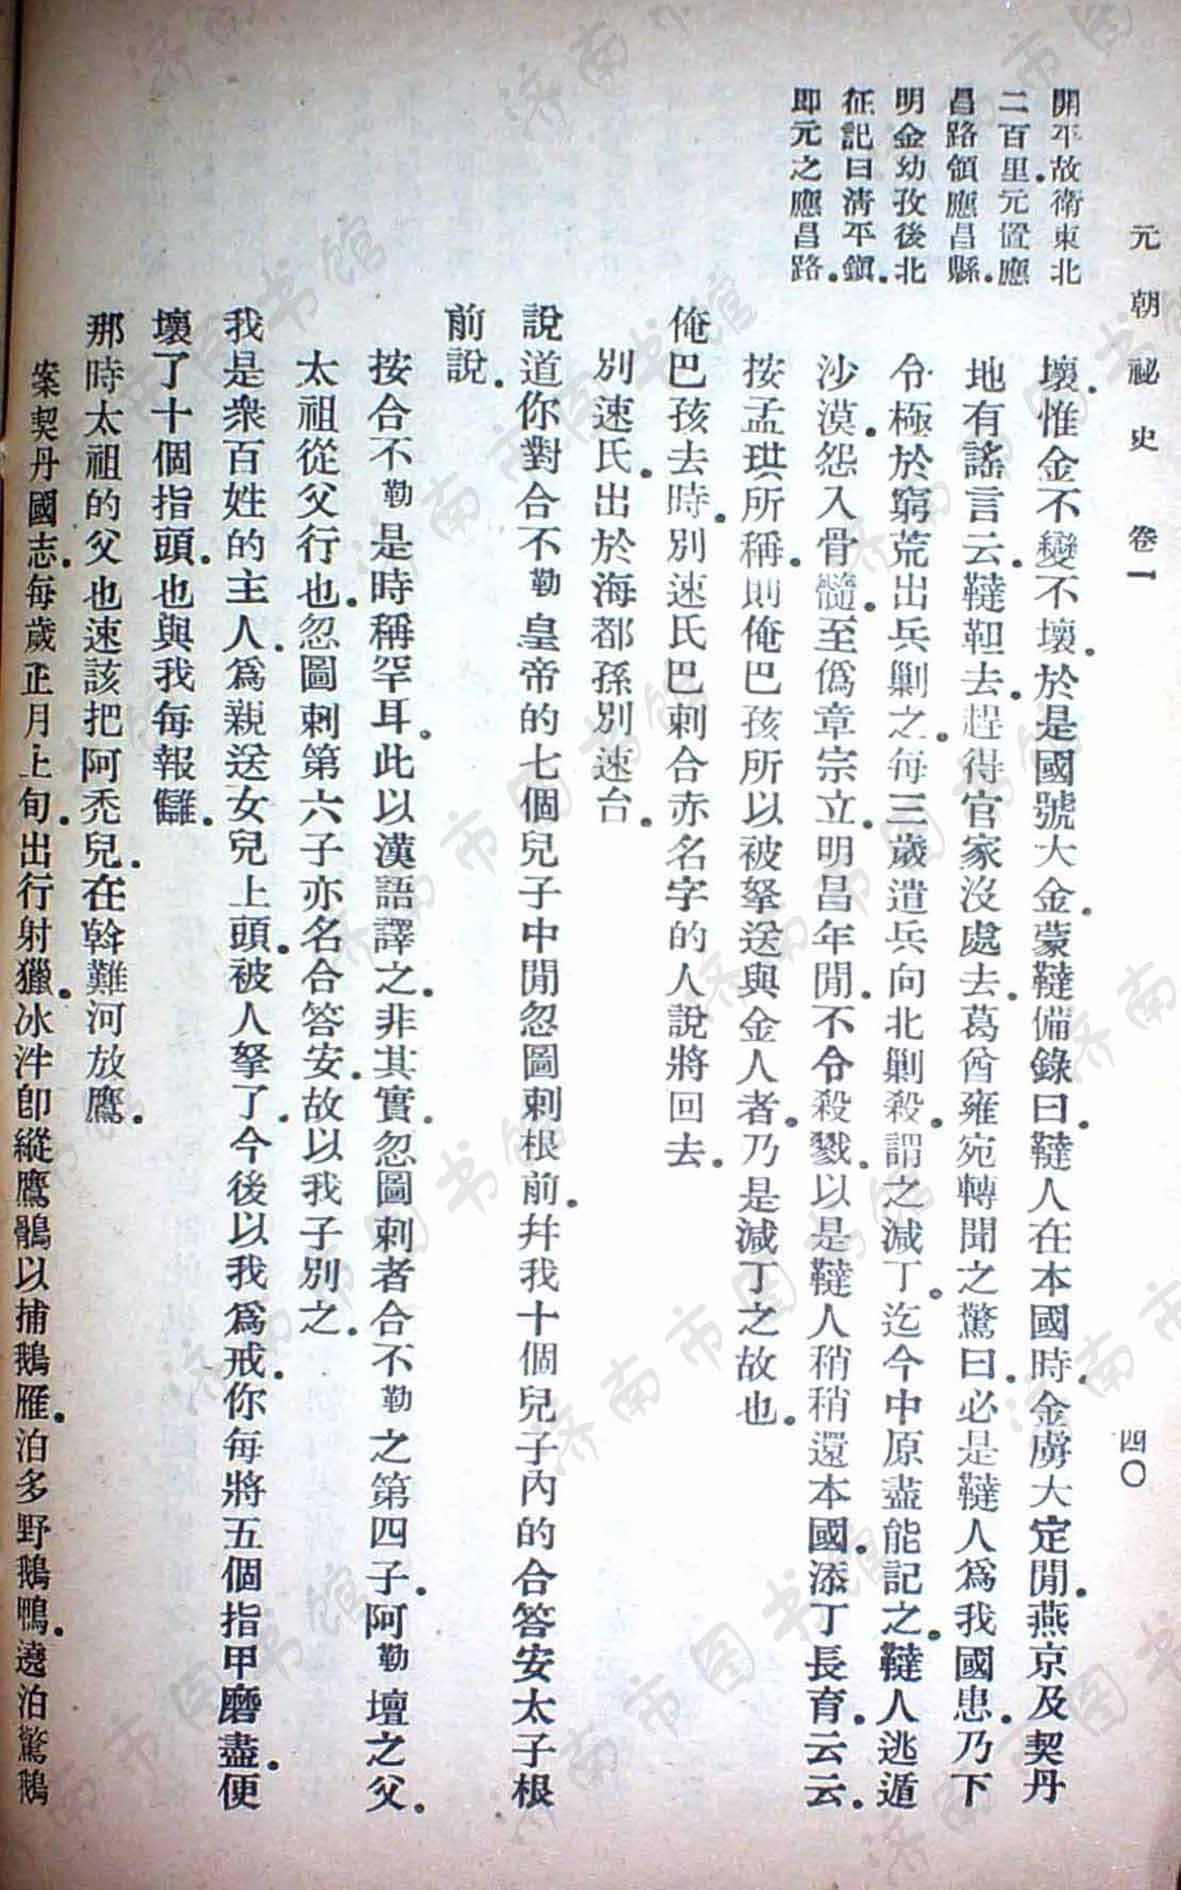 元朝祕史 卷一
四〇
開平故衛東北
二百里元置應
昌路領應昌縣
明金幼孜後北
征記曰淸平鎭
即元之應昌路
壞惟金不變不壞於是國號大金蒙韃備錄曰韃人在本國時金虜大定閒燕京及契丹
地有謠言云韃靼去趕得官家沒處去葛酋雍宛轉聞之驚曰必是韃人爲我國患乃下
令極於窮荒出兵剿之每三歲遣兵向北剿殺謂之減丁迄今中原盡能記之韃人逃遁
沙漠怨入骨髓至僞章宗立明昌年閒不令殺戮以是韃人稍稍還本國添丁長育云云
按孟珙所稱則俺巴孩所以被拏送與金人者乃是減丁之故也
俺巴孩去時別速氏巴剌合赤名字的人說將回去
別速氏出於海都孫別速台
說道你對合不勒皇帝的七個兒子中閒忽圖剌根前幷我十個兒子內的合答安太子根
前說
按合不勒是時稱罕耳此以漢語譯之非其實忽圖剌者合不勒之第四子阿勒壇之父
太祖從父行也忽圖剌第六子亦名合答安故以我子別之
我是衆百姓的主人爲親送女兒上頭被人拏了今後以我爲戒你每將五個指甲磨盡便
壞了十個指頭也與我每報讎
那時太祖的父也速該把阿禿兒在斡難河放鷹
案契丹國志每歲正月上旬出行射獵冰泮卽縱鷹鶻以捕鵝雁泊多野鵝鴨遶泊驚鵝